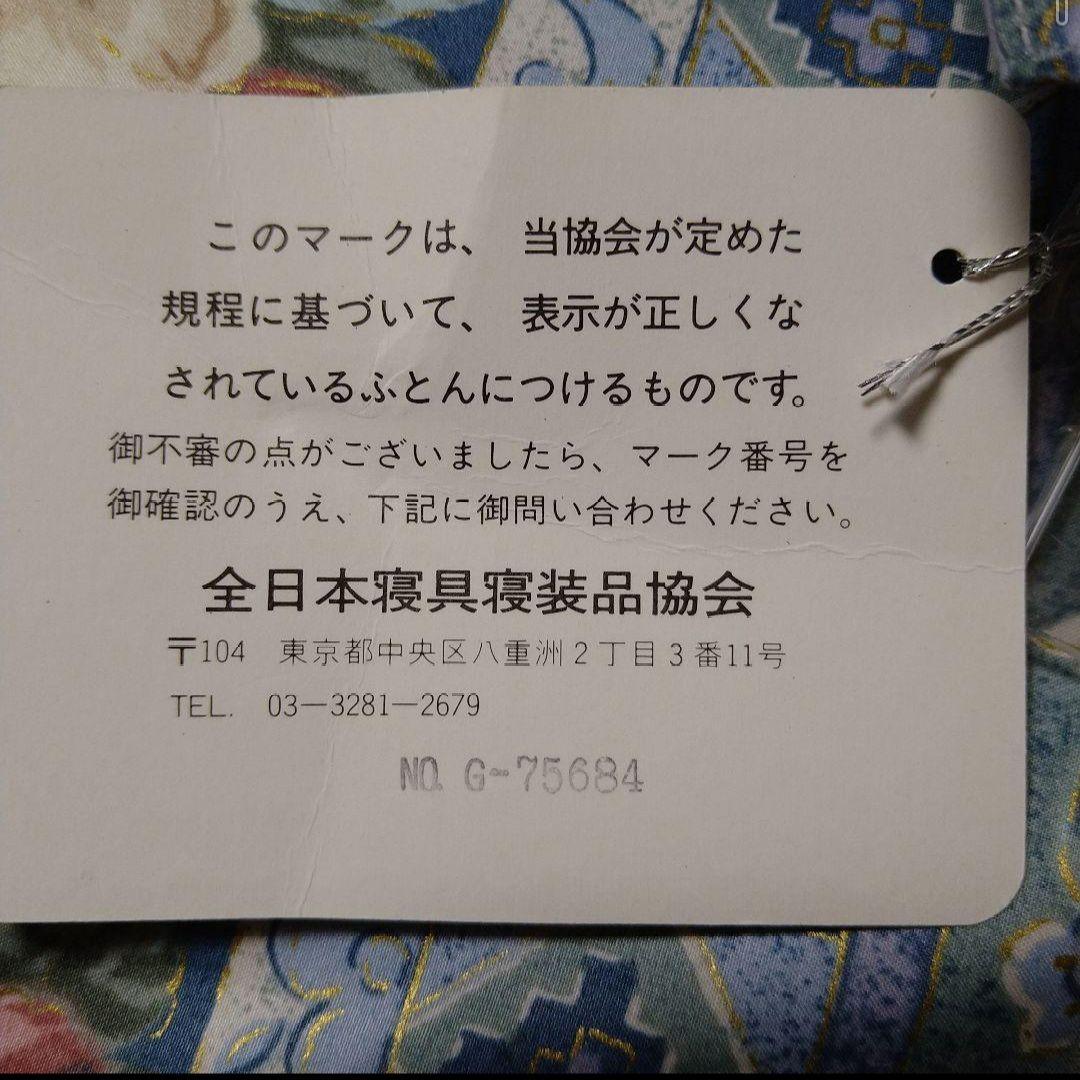 このマークは、 当協会が定めた
規程に基づいて、 表示が正しくな
されているふとんにつけるものです。
御不審の点がございましたら、マーク番号を
御確認のうえ、下記に御問い合わせください。
全日本寝具寝装品協会
〒104 東京都中央区八重洲2丁目3番11号
TEL. 03-3281-2679
NO. G-75684